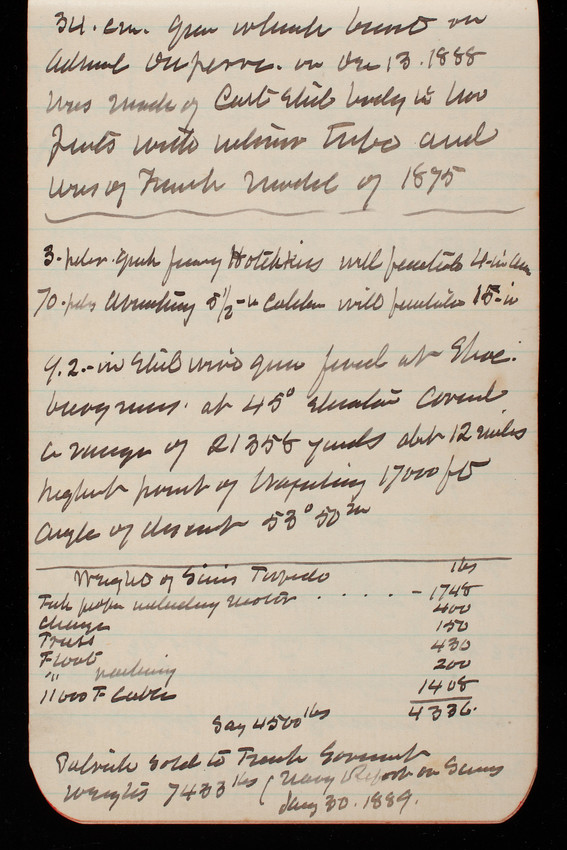 34. cm. gun which burst on
Admiral Duperre. on Dec 13. 1888
Was made of Cast Steel body in two
parts with interior tube and
was of French Model of 1875
3. pdr. Hotchkiss will penetrate 4-in
70. pdr Armstrong 5 1/2-in caliber will penetrate 15-in
9.2.-in Steel wire gun fired at Shoe.
buryness. at 45° elevation covered
a range of 21358 yards abt 12 miles
highest point of trajectory 17000 ft
angle of descent 53° 50 m
Weight of Sims Torpedo lbs
Fish proper including motor . . . . . - 1748
Charge 400
Truss 150
Float 430
" 200
11000 F- Cable 1408
4336.
Say 4500 lbs
Sold to French Goverment
Weights 7433 lbs ( Navy Report on Sims
Jany 30. 1889.